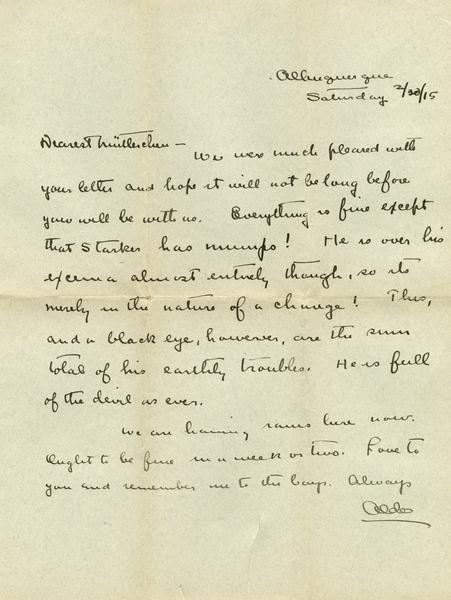 Albuquerque
Saturday 2/30/15
Dearest Mütterchen -
We were much pleased with
your letter and hope it will not be long before
you will be with us. Everything is fine except
that Starker has mumps! He is over his
excema almost entirely though, so its
merely in the nature of a change! This,
and a black eye, however, are the sum
total of his earthly troubles. He is full
of the devil as ever.
We are having rains here now.
Ought to be fine in a week or two. Love to
you and remember me to the boys. Always
Aldo